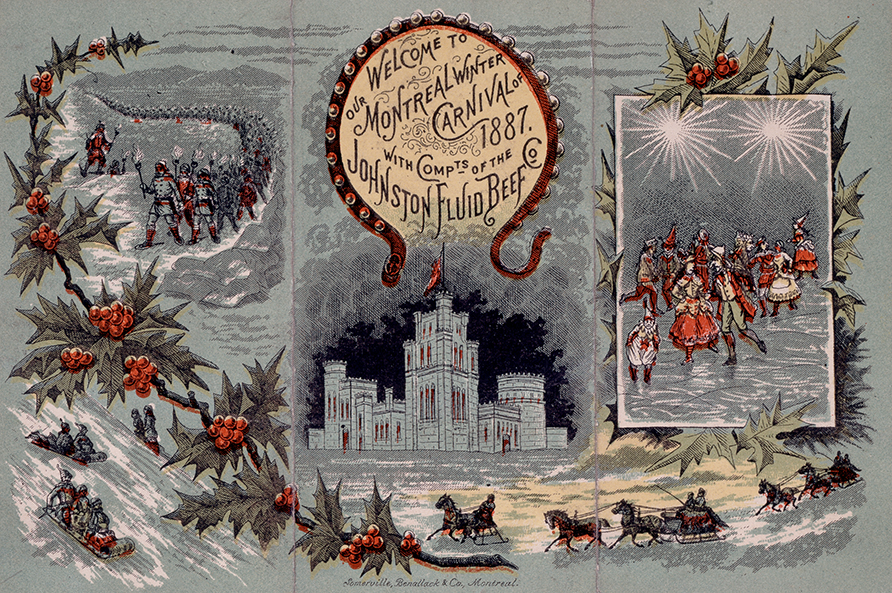 WELCOME TO
OUR MONTREAL WINTER
CARNIVAL OF
1887.
WITH COMPTS OF THE
JOHNSTON FLUID BEEF CO
Somerville, Benallack & Co., Montreal.